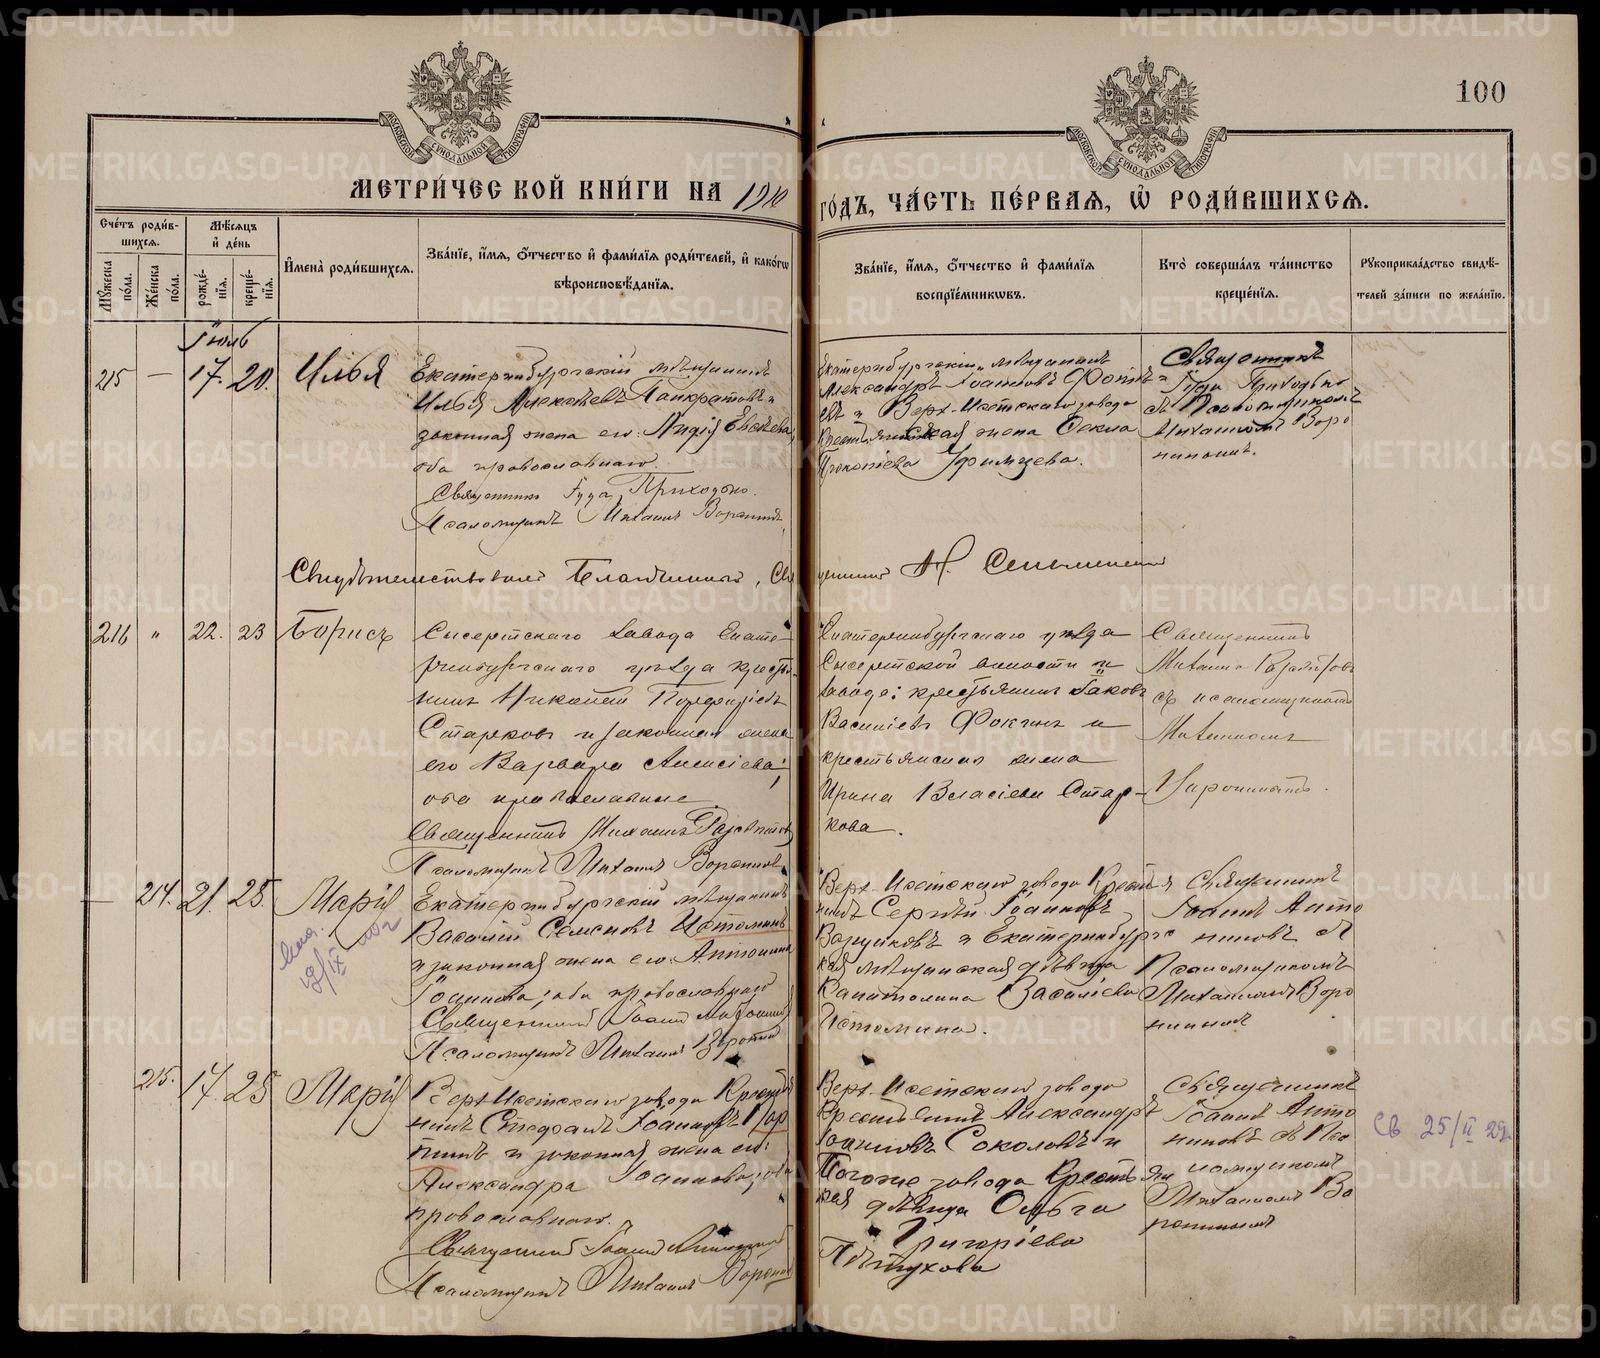 100
МОСКОВСКОЙ СѴНОДАЛЬНОЙ ТИПОГРАФІИ
МОСКОВСКОЙ СѴНОДАЛЬНОЙ ТИПОГРАФІИ
МЕТРИ́ЧЕСКОЙ КНИ́ГИ НА 1910
ГО́ДЪ, ЧА́СТЬ ПЕ́РВАЯ, Ѡ҆ РОДИ́ВШИХСЯ.
Сче́тъ роди́в-
шихся.
Мѣ́сяцъ
и҆ де́нь
Мꙋ́жеска по́ла.
Же́нска по́ла.
рожде́-
нїя.
креще́-
нїя.
И҆мена̀ роди́вшихся.
Зва́нїе, и҆́мя, ѻ҆́тчество и҆ фами́лїя роди́телей, и҆ како́гѡ
вѣроисповѣ́данїя.
Зва́нїе, и҆́мя, ѻ҆́тчество и҆ фами́лїя
воспрїе́мникѡвъ.
Кто̀ соверша́лъ та́инство
креще́нїя.
Рꙋкоприкла́дство свидѣ́-
телей за́писи по жела́нїю.
Іюль
215 — 17. 20. Илья
Екатеринбургскій мѣщанинъ
Илья Алексѣевъ Панкратовъ и
законная жена его Лидія Евсѣева,
оба православнаго.
Священникъ Іуда Приходько.
Псаломщикъ Михаилъ Воронинъ
Екатеринбургскій мѣщанинъ
Александръ Іоанновъ
и Верх-Исетскаго завода
Крестьянская жена Фекла
Прокопіева Уфимцева.
Священникъ
Іуда Приходько
съ Псаломщикомъ
Михаиломъ Воро
нинымъ.
Свидѣтельствовалъ Благочинный, Священникъ
216 " 22. 23 Борисъ
Сысертскаго завода Екате-
ринбургскаго уѣзда крестья-
нинъ Николай Порфиріевъ
Старковъ и законная жена
его Варвара Алексіева;
оба православные.
Священникъ Михаилъ
Псаломщикъ Михаилъ Воронинъ
Екатеринбургскаго уѣзда
Сысертской волости и
завода: крестьянинъ Іаковъ
Василіевъ Фокинъ и
крестьянская жена
Ирина Власіева Стар-
кова.
Священникъ
Михаилъ
съ псаломщикомъ
Михаиломъ
Воронинымъ.
214. 21. 25. Марія
Екатеринбургскій мѣщанинъ
Василій Семеновъ Истоминъ
и законная жена его Антонина
Іоаннова, оба православнаго
Священникъ Іоаннъ Антониновъ
Псаломщикъ Михаилъ Воронинъ
Верх-Исетскаго завода Крестья
нинъ Сергѣй Іоанновъ
и Екатеринбургс
кая мѣщанская дѣвица
Капитолина Василіева
Истомина.
Священникъ
Іоаннъ Анто
ниновъ съ
Псаломщикомъ
Михаиломъ Воро
нинымъ
215. 17. 25 Марія
Верх-Исетскаго завода Крестья
нинъ Стефанъ Іоанновъ
и законная жена его
Александра Іоаннова, оба
православнаго.
Священникъ Іоаннъ Антониновъ
Псаломщикъ Михаилъ Воронинъ
Верх-Исетскаго завода
Крестьянинъ Александръ
Іоанновъ Соколовъ и
завода Крестьян
кая дѣвица Ольга
Григоріева
Пѣтухова
Священникъ
Іоаннъ Анто
ниновъ съ Пса
ломщикомъ
Михаиломъ Во
ронинымъ
Св 25/II 29г
METRIKI.GASO-URAL.RU